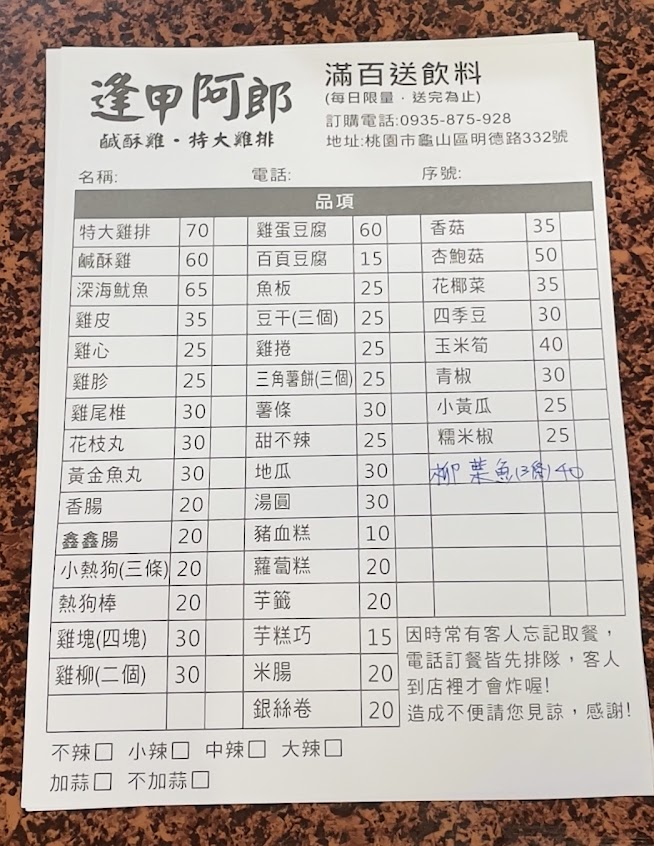 逢甲阿郎
鹹酥雞·特大雞排
滿百送飲料
(每日限量·送完為止)
訂購電話:0935-875-928
地址:桃園市龜山區明德路332號
名稱: 電話: 序號:
品項
特大雞排 70 雞蛋豆腐 60 香菇 35
鹹酥雞 60 百頁豆腐 15 杏鮑菇 50
深海魷魚 65 魚板 25 花椰菜 35
雞皮 35 豆干(三個) 25 四季豆 30
雞心 25 雞捲 25 玉米筍 40
雞胗 25 三角薯餅(三個) 25 青椒 30
雞尾椎 30 薯條 30 小黃瓜 25
花枝丸 30 甜不辣 25 糯米椒 25
黃金魚丸 30 地瓜 30 柳葉魚(3條) 40
香腸 20 湯圓 30
鑫鑫腸 20 豬血糕 10
小熱狗(三條) 20 蘿蔔糕 20
熱狗棒 20 芋籤 20
雞塊(四塊) 30 芋糕巧 15
雞柳(二個) 30 米腸 20
銀絲卷 20
因時常有客人忘記取餐,
電話訂餐皆先排隊,客人
到店裡才會炸喔!
造成不便請您見諒,感謝!
不辣□ 小辣□ 中辣□ 大辣□
加蒜□ 不加蒜□